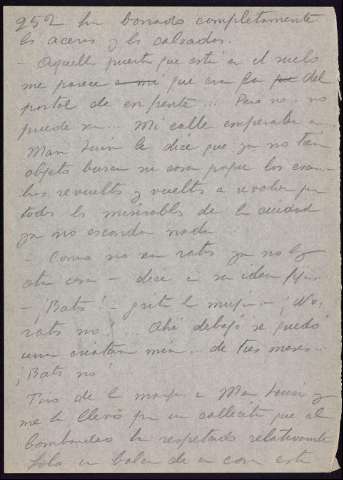 252 ha borrado completamente
las aceras y las calzadas.
- Aquella puerta que está en el suelo
me parece a mi que era la que del
portal de enfrente... Pero no, no
puede ser... Mi calle empezaba a
Man Louis le dice que ya no tan
objeto buscar su cosa porque los escom
bros revueltos y vueltos a revolver por
todos los miserables de la ciudad
ya no esconden nada
- Como no sean ratas ya no hay
otra cosa - dice a su idea fija.
- ¡Rats! - grita la mujer - ¡No,
rats no!... Ahí debajo se quedó
una criatura mía.. de tres meses..
¡Rats no!
Tiro de la manga a Man Louis y
me lo llevo por un callecita que el
bombardeo ha respetado relativamente
Solo un balcón de una casa está